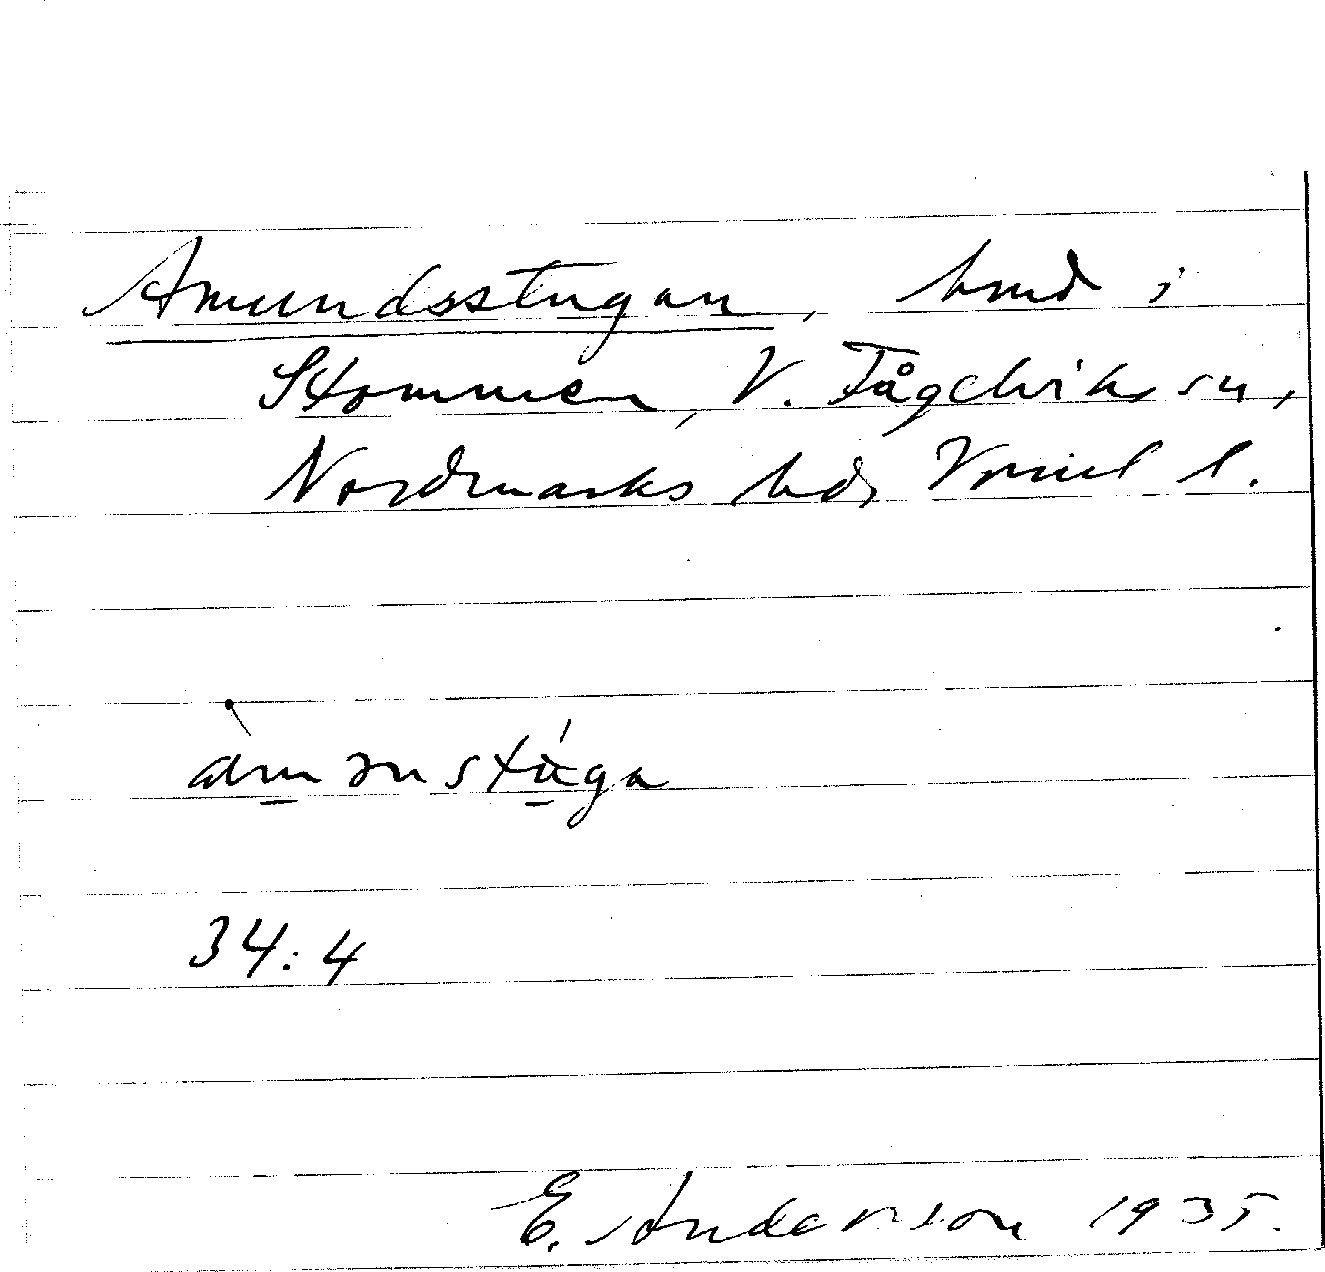 Amundsstugan, hmd i
Stommen, V. Fågelviks sn,
Nordmarks hd, Vrml l.
34:4
E. Anderson 1935.